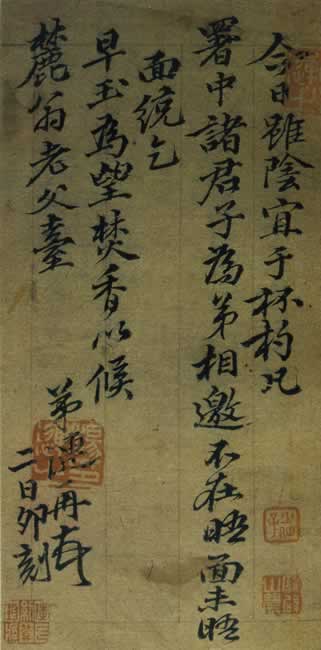 今日雖陰宜于杯杓凡
署中諸君子為弟相邀不在晤面未晤
面統乞
早玉為望焚香以候
麓翁老父臺
弟
再
二日卯刻